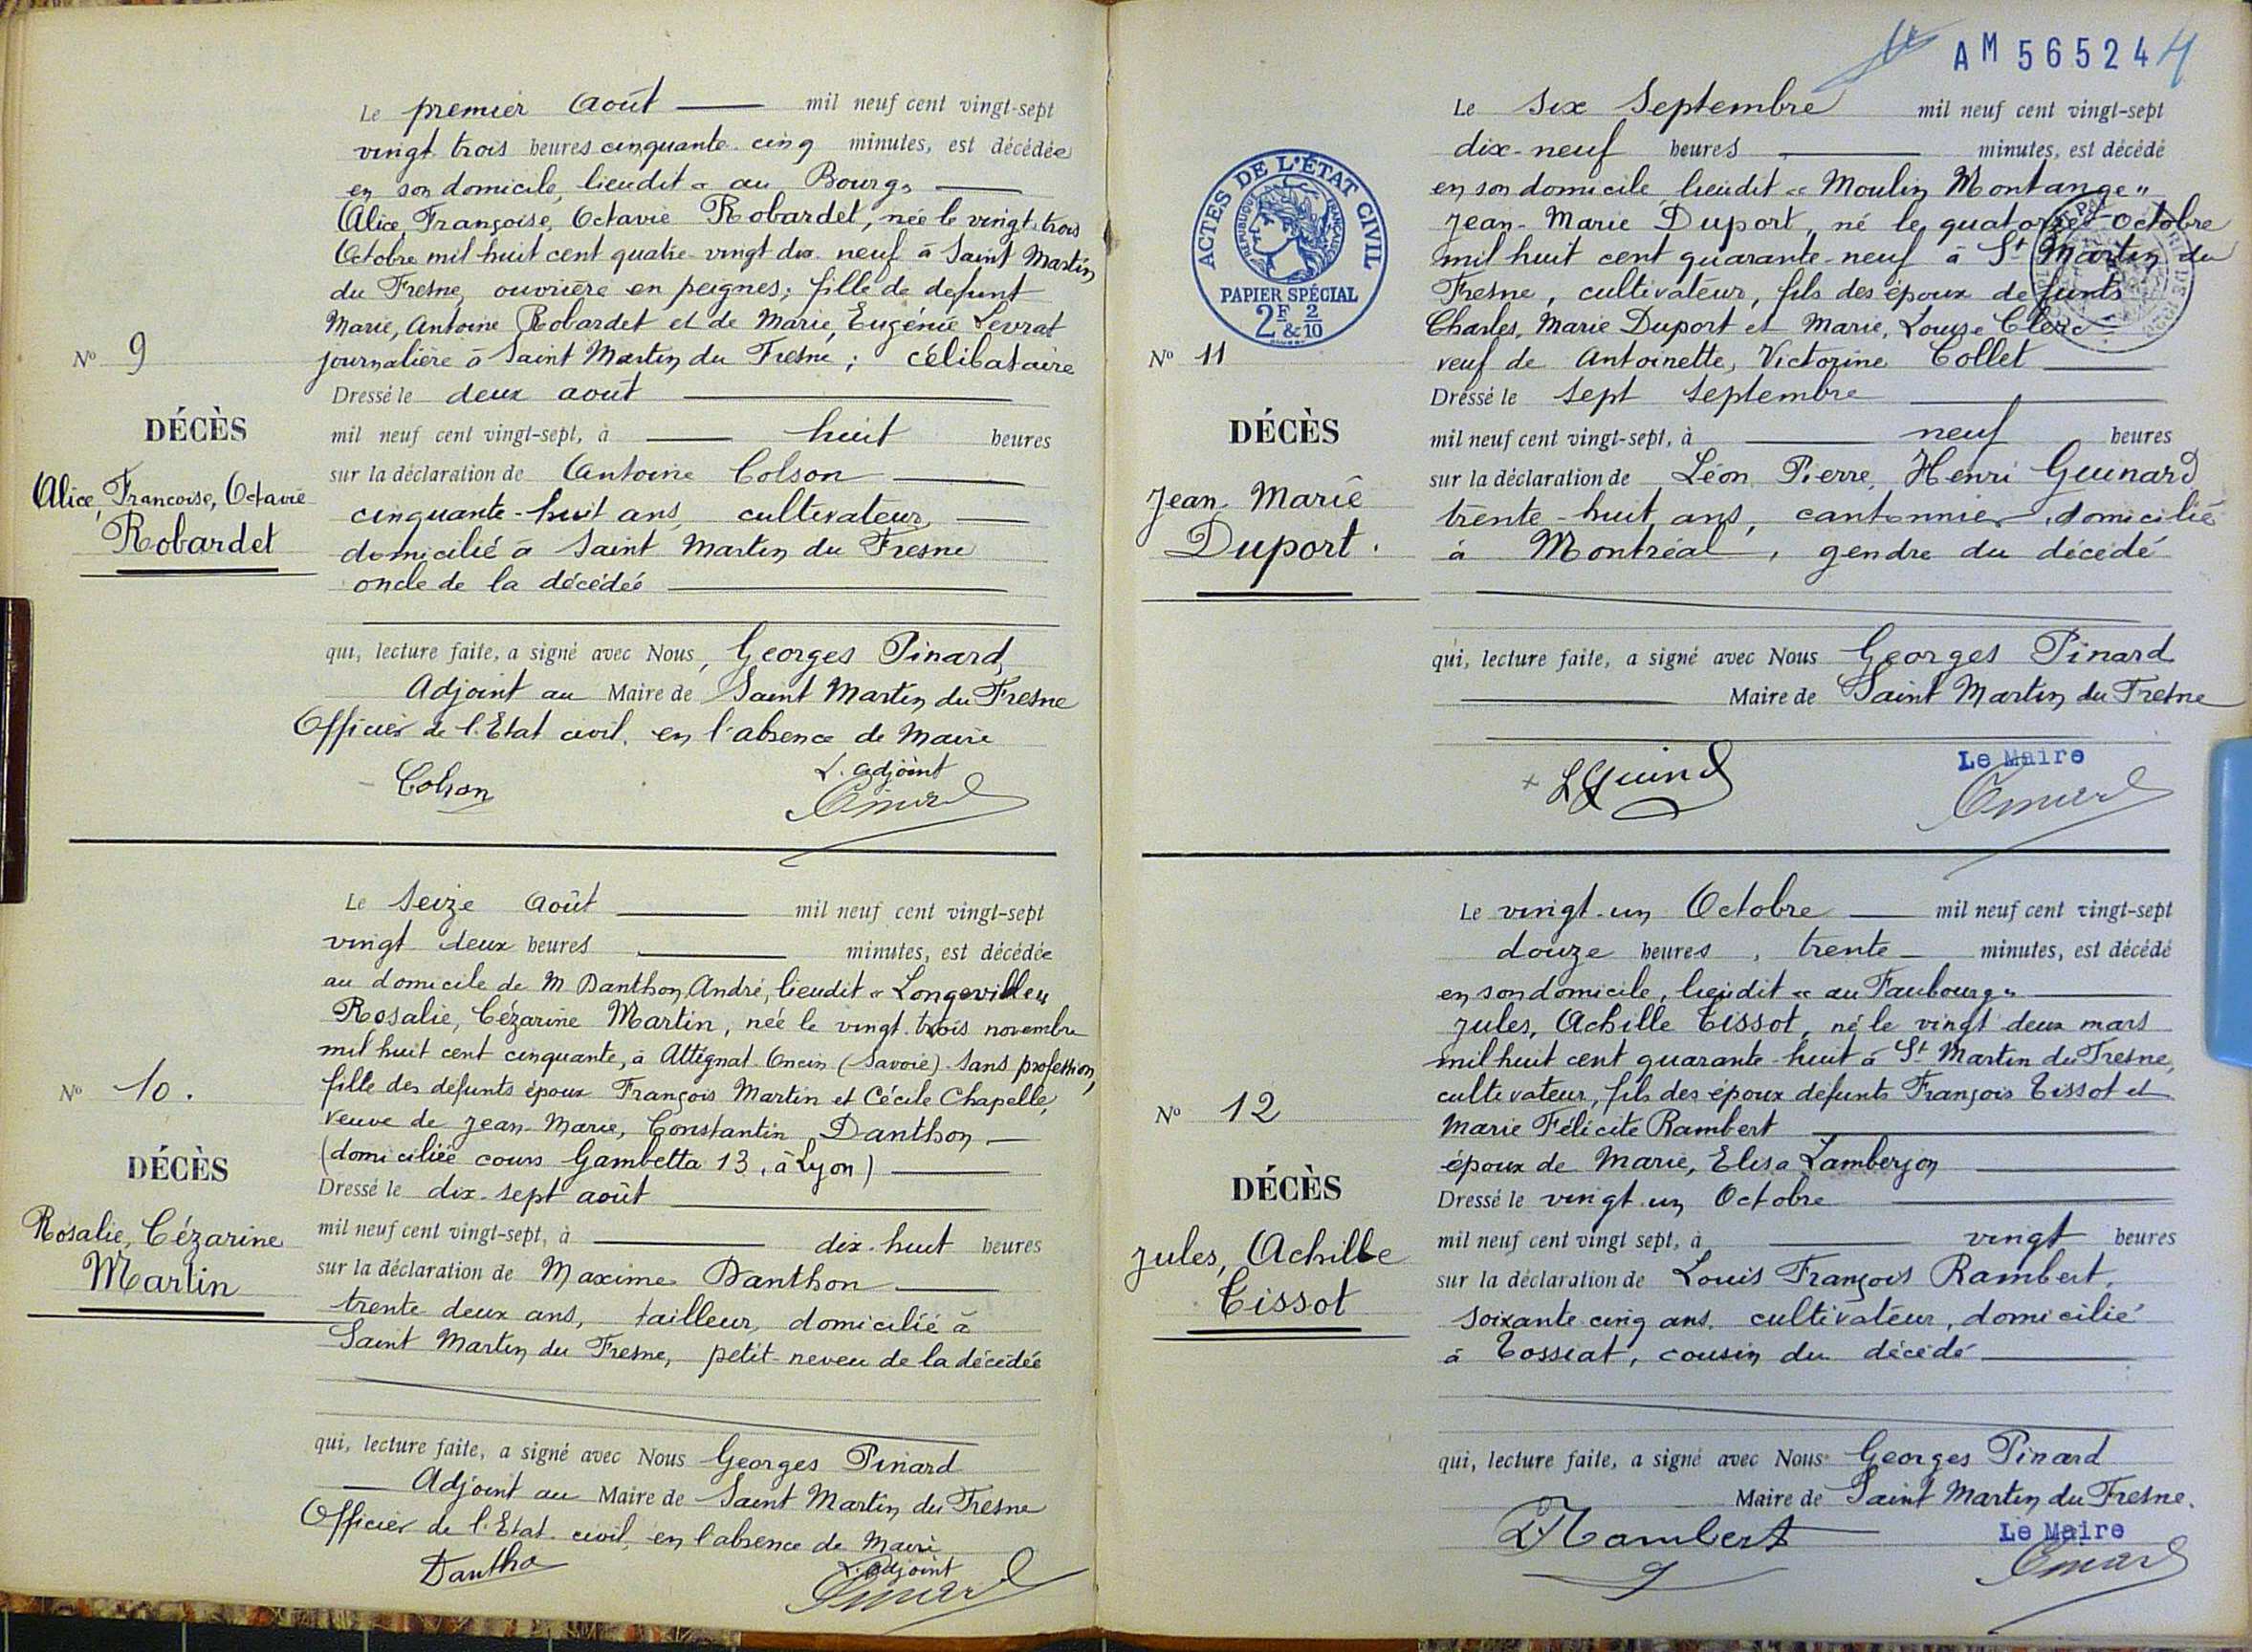 Le premier Août mil neuf cent vingt-sept
vingt trois heures cinquante cinq minutes, est décédée
en son domicile, lieudit « au Bourg »
Alice, Françoise, Octavie Robardet, née le vingt trois
Octobre mil huit cent quatre vingt dix neuf à Saint Martin
du Fresne, ouvrière en peignes; fille de defunt
Marie, Antoine Robardet et de Marie, Eugénie Levrat
journalière à Saint Martin du Fresne; célibataire
Nº 9
Dressé le deux août
DÉCÈS
mil neuf cent vingt-sept, à huit heures
sur la déclaration de Antoine Colson
Alice, Francoise, Octavie
Robardet
cinquante-huit ans, cultivateur,
domicilié à Saint Martin du Fresne
oncle de la décédée
qui, lecture faite, a signé avec Nous, Georges Pinard,
Adjoint au Maire de Saint Martin du Fresne
Officier de l'Etat civil, en l'absence de Maire
Colson
L'adjoint
Le Seize Août mil neuf cent vingt-sept
vingt deux heures minutes, est décédée
au domicile de M Danthon André, lieudit « Longeville »
Rosalie, Cézarine Martin, née le vingt trois novembre
mil huit cent cinquante, à Attignat-Oncin (Savoie) Sans profession,
fille des défunts époux François Martin et Cécile Chapelle,
veuve de Jean-Marie, Constantin Danthon
(domiciliée cours Gambetta 13, à Lyon)
Nº 10.
Dressé le dix-sept août
DÉCÈS
mil neuf cent vingt-sept, à dix-huit heures
sur la déclaration de Maxime Danthon
Rosalie, Cézarine
Martin
trente deux ans, tailleur, domicilié à
Saint Martin du Fresne, petit-neveu de la décédée
qui, lecture faite, a signé avec Nous Georges Pinard
Adjoint au Maire de Saint Martin du Fresne
Officier de l'Etat civil, en l'absence de Maire
Dantho
L'adjoint
AM 565244
ACTES DE L'ÉTAT CIVIL
RÉPUBLIQUE FRANÇAISE
PAPIER SPÉCIAL
2F & 2/10
Le Six Septembre mil neuf cent vingt-sept
dix-neuf heures minutes, est décédé
en son domicile lieudit « Moulin Montange »
Jean-Marie Duport, né le quatorze octobre
mil huit cent quarante-neuf à St Martin du
Fresne, cultivateur, fils des époux defunts
Charles, Marie Duport et Marie, Louise Clerc
veuf de Antoinette, Victorine Collet
Nº 11
Dressé le sept septembre
DÉCÈS
mil neuf cent vingt-sept, à neuf heures
sur la déclaration de Léon, Pierre, Henri Guinard
Jean-Marie
Duport.
trente-huit ans, cantonnier, domicilié
à Montréal, gendre du décédé
qui, lecture faite, a signé avec Nous Georges Pinard
Maire de Saint Martin du Fresne
LGuind
Le Maire
Le vingt-un Octobre mil neuf cent vingt-sept
douze heures, trente minutes, est décédé
en son domicile, lieudit « au Faubourg »
Jules, Achille Tissot, né le vingt deux mars
mil huit cent quarante-huit à St Martin du Fresne,
cultivateur, fils des époux défunts François Tissot et
Marie Félicité Rambert
époux de Marie, Elisa Lamberjon
Nº 12
Dressé le vingt-un Octobre
DÉCÈS
mil neuf cent vingt sept, à vingt heures
sur la déclaration de Louis François Rambert,
Jules, Achille
Tissot
soixante cinq ans, cultivateur, domicilié
à Tossiat, cousin du décédé
qui, lecture faite, a signé avec Nous Georges Pinard
Maire de Saint Martin du Fresne.
Rambert
Le Maire